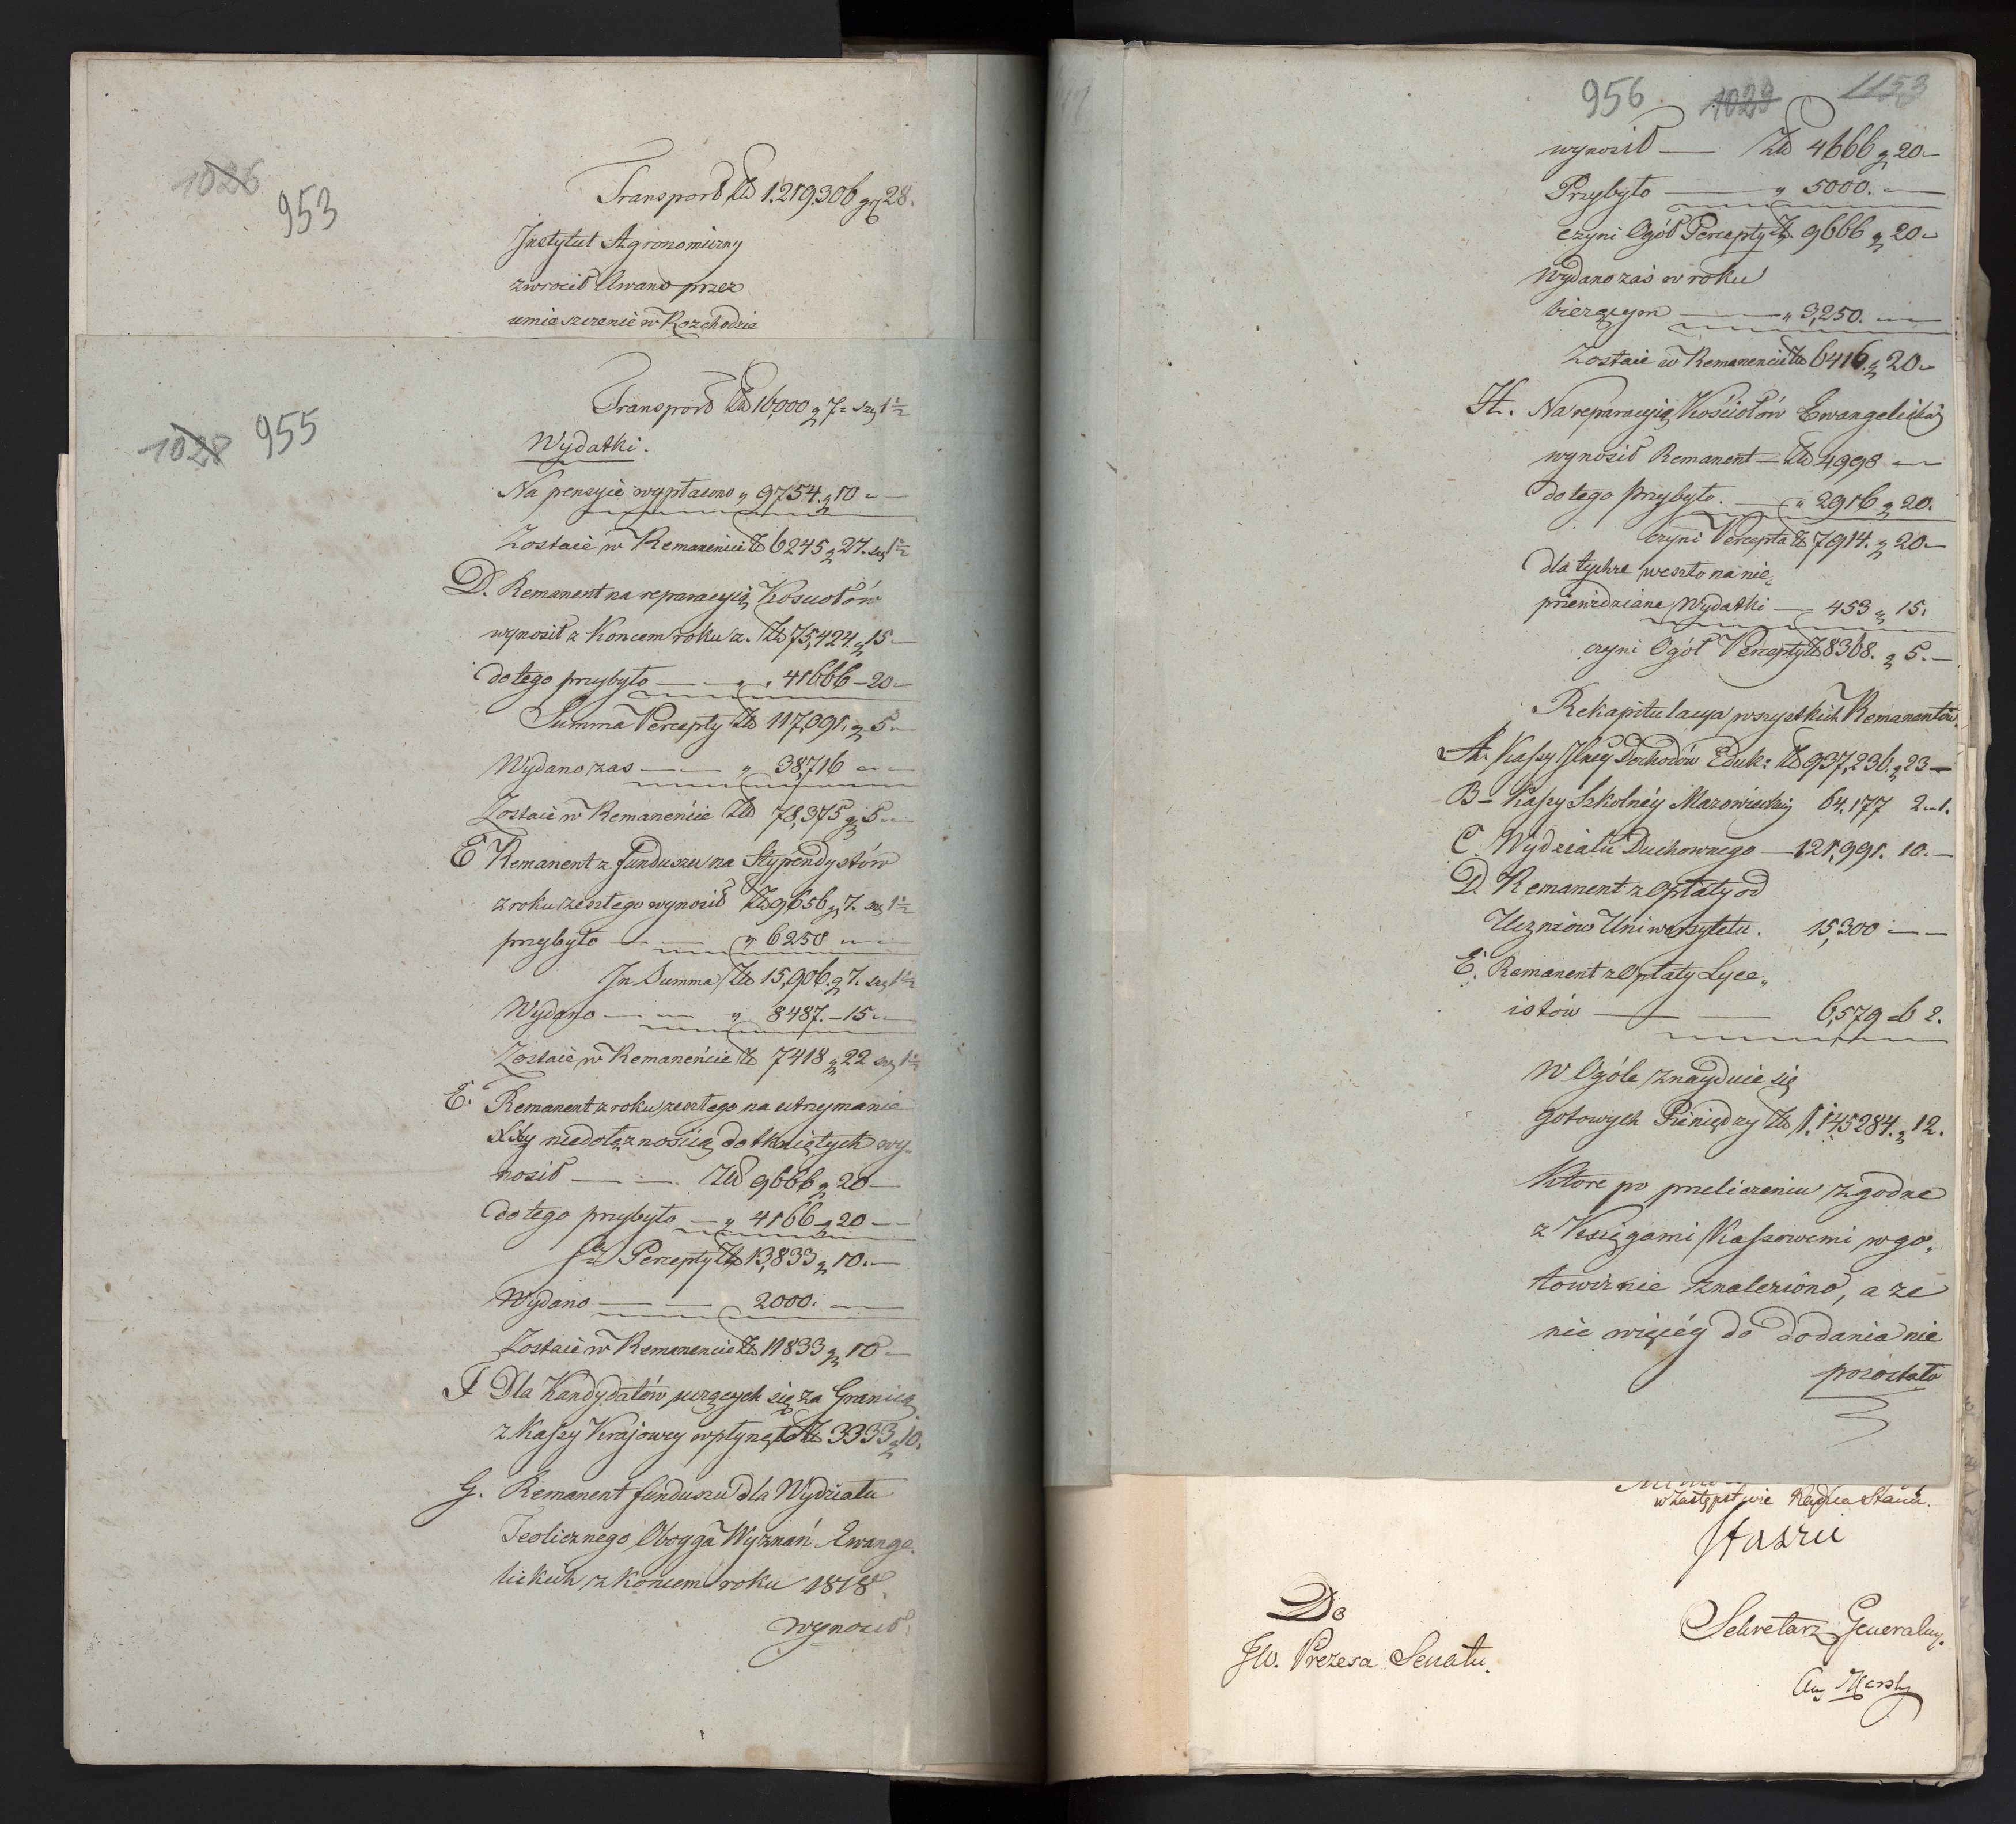 1026
953
Transport Zł 1.219.306 gr 28.
Instytut Agronomiczny
zwrócił Awans przez
umieszczenie w Rozchodzie
1028 955
Transport Zł 16,000 g 7 szg 1½
Wydatki.
Na pensyie wypłacono „ 9754. g 10 —
Zostaie w Remanencie Zł 6245 g 27. szg 1½
D. Remanent na reparacyią Kosciołów
wynosił z Koncem roku z. Zł 75,424. g 15 —
do tego przybyło — „ 41666 — 20 —
Summa Percepty Zł 117,091. g 5 —
Wydano zas — — „ 38,716 — —
Zostaie w Remanencie Zł 78,375 g 5 —
E Remanent z funduszu na Stypendystów
z roku zeszłego wynosił Zł 9656 g 7. szg 1½
przybyło — — „ 6250 — —
In Summa Zł 15,906. g 7. szg 1½
Wydano — — „ 8487. — 15 —
Zostaie w Remanencie Zł 7418 g 22 szg 1½
E. Remanent z roku zeszłego na utrzymanie
XXży niedołężnością dotkniętych wy-
nosił — — Zł 9666 g 20 —
do tego przybyło — „ 4166 g 20 —
Percepty Zł 13,833 g 10. —
Wydano — — 2000. —
Zostaie w Remanencie Zł 11833 g 10 —
F Dla Kandydatów uczących się za Granicą
z Kassy Krajowey wpłynęło Zł 3333 g 10.
G. Remanent funduszu dla Wydziału
Teolicznego Oboyga Wyznań Ewange-
lickich z koncem roku 1818
wynosił
956 1029 1153
wynosił — Zł 4666 g 20 —
Przybyło — „ 5000. —
czyni Ogół Percepty Zł 9666 g 20 —
Wydano zaś w roku
bieżącym — „ 3,250. —
Zostaie w Remanencie Zł 6416. g 20 —
H. Na reparacyią Kościołów Ewangelickich
wynosił Remanent — Zł 4998 —
do tego przybyło. — „ 2916 g 20.
czyni Percepta Zł 7914. g 20 —
dla tychże weszło na nie-
przewidziane Wydatki — 453 g 15.
czyni Ogół Percepty Zł 8368. g 5. —
Rekapitulacya wszystkich Remanentów
A. Kassy Jlney Dochodów Eduk: Zł 937,236. g 23 —
B — Kassy Szkolnéy Mazowieckiey 64.177 2 — 1.
C. Wydziału Duchownego — 121,991. 10. —
D. Remanent z Opłaty od
Uczniów Uniwersytetu. 15,300 — —
E. Remanent z Opłaty Lyce„
istów — — 6,579 — 6 2.
W Ogóle znayduie się
gotowych Pieniędzy Zł 1.145284. g 12.
Które po przeliczeniu zgodne
z Xsięgami Kassowemi w go„
towiznie znaleziono, a że
nic więcéy do dodania nie
pozostało
w Zastępstwie Radca Stanu.
Staszic
Do
JW. Prezesa Senatu.
Sekretarz Generalny.